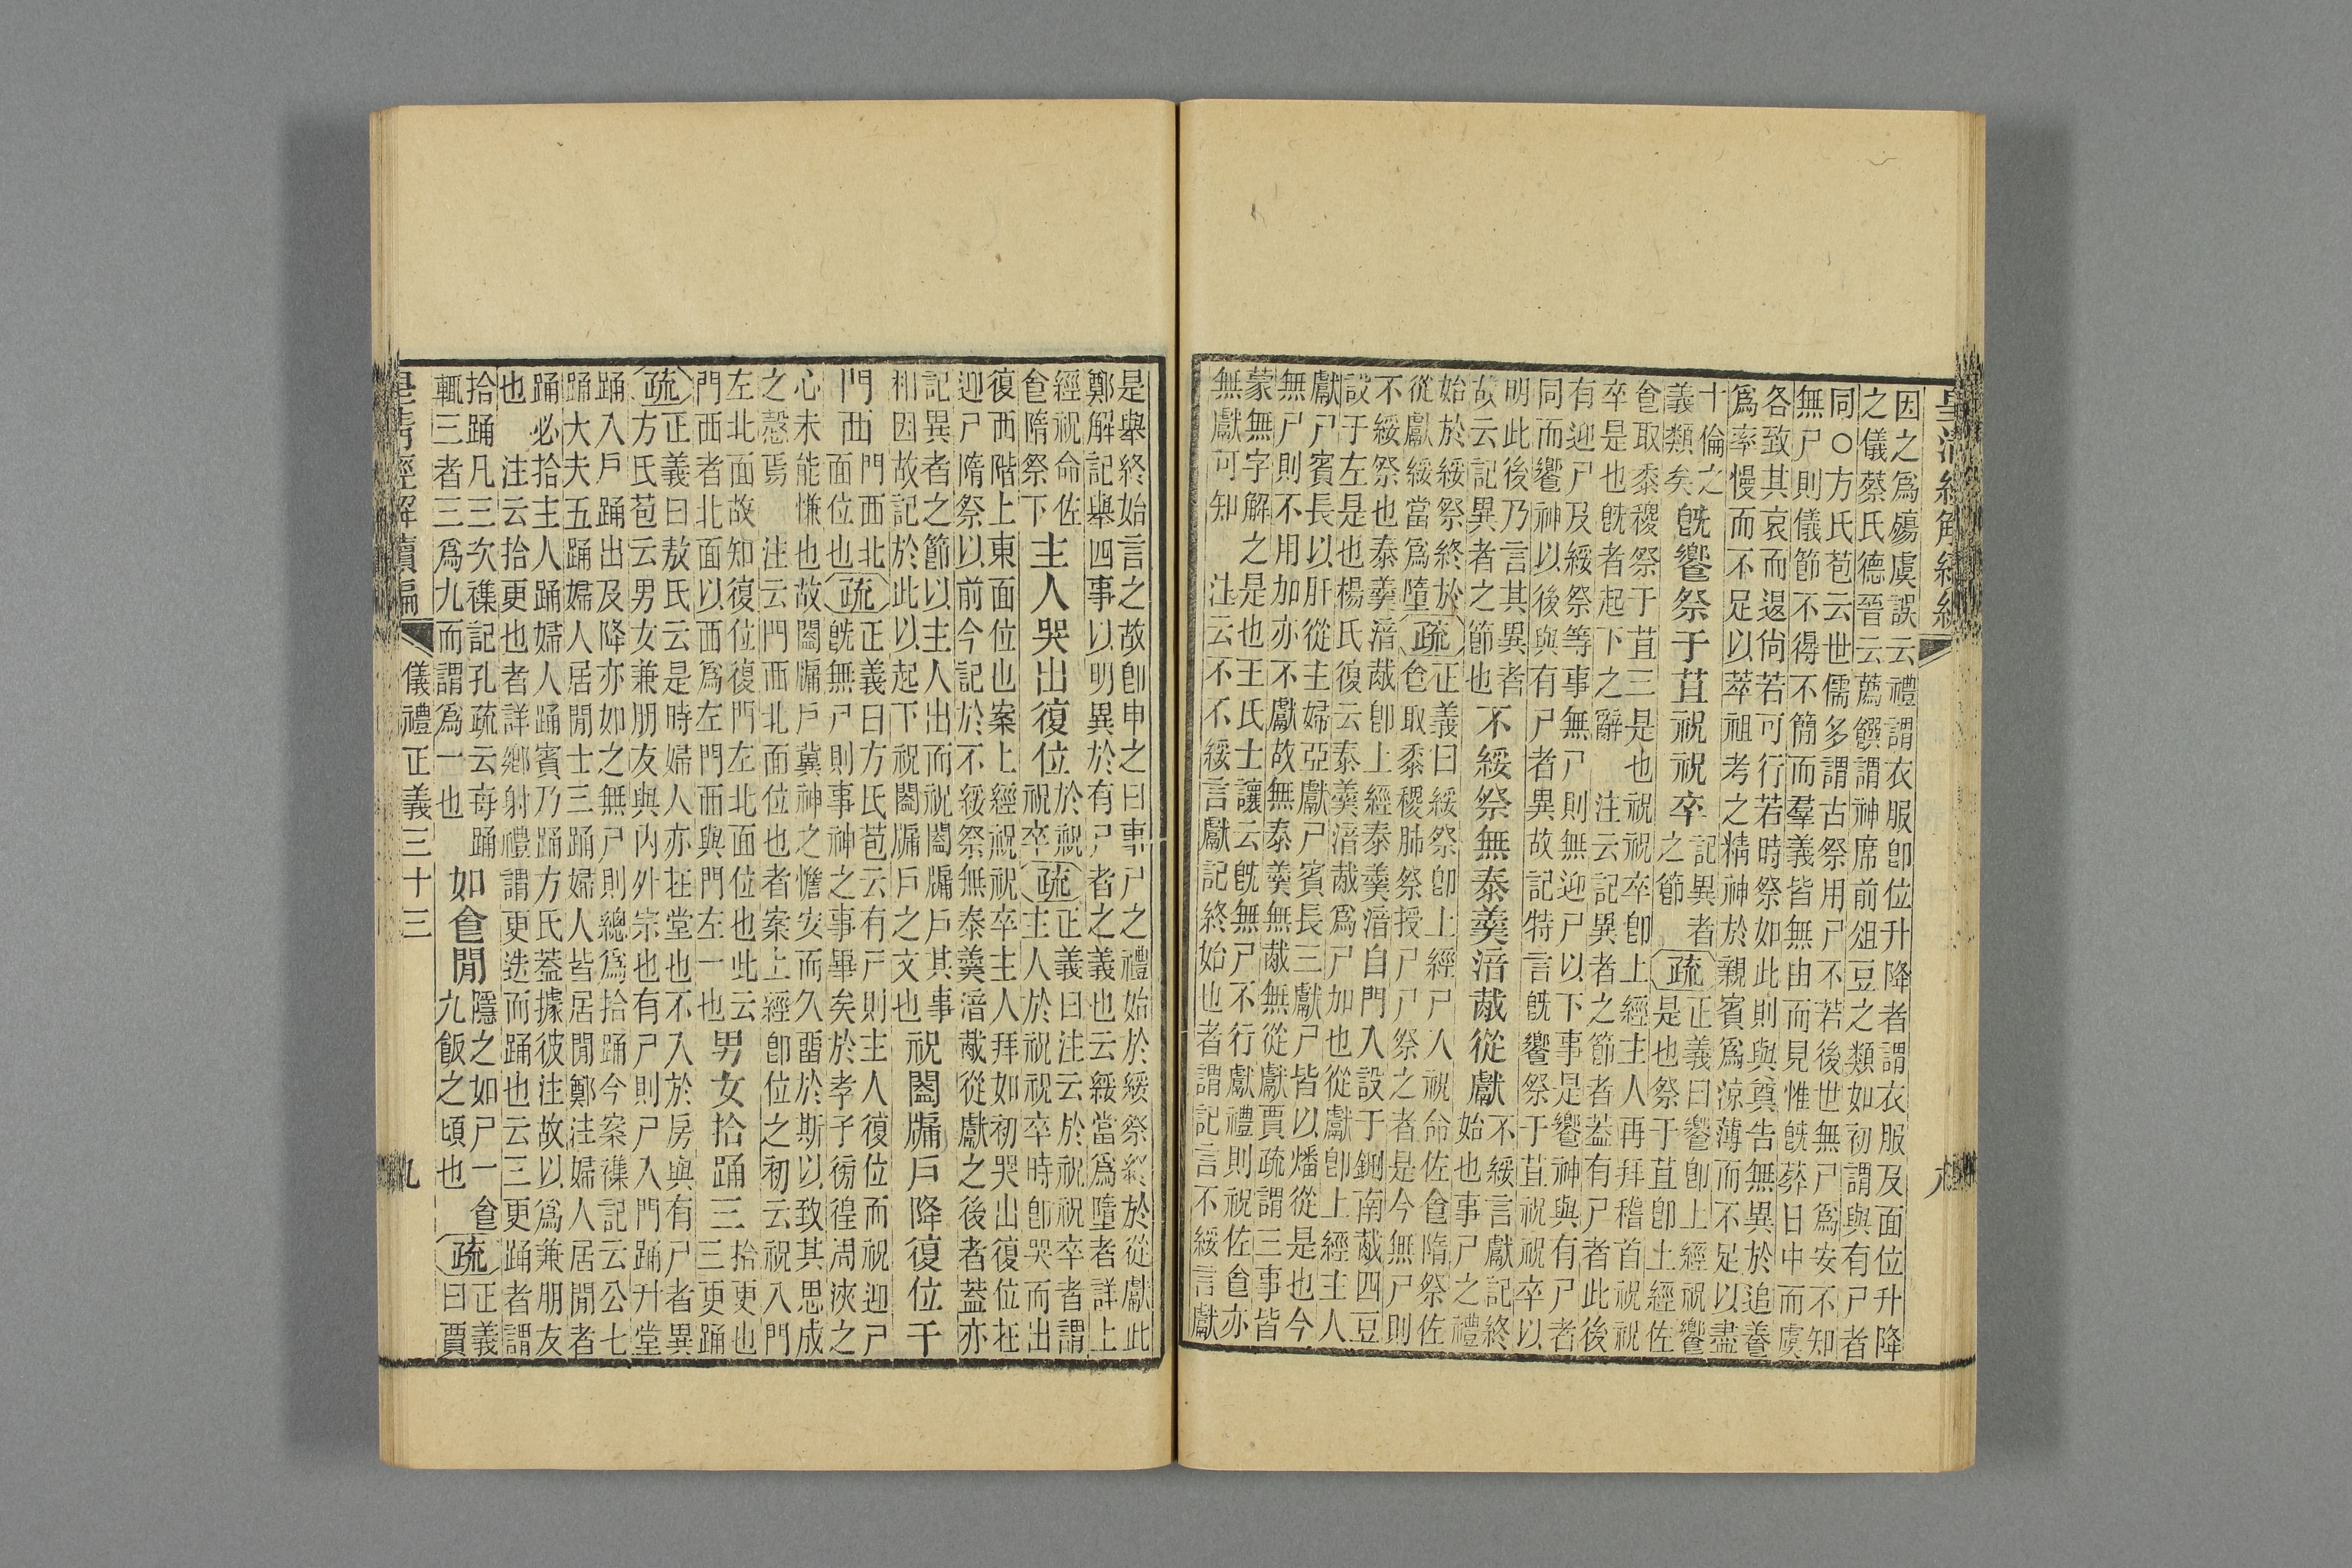 皇清經解續編
因之爲殤虞誤云禮謂衣服卽位升降者謂衣服及面位升降
之儀蔡氏德晉云薦饌謂神席前俎豆之類如初謂與有尸者
同○方氏苞云世儒多謂古祭用尸不若後世無尸爲安不知
無尸則儀節不得不簡而羣義皆無由而見惟旣葬日中而虞
各致其哀而退尙若可行若時祭如此則與奠告無異於追養
爲率慢而不足以萃祖考之精神於親賓爲涼薄而不足以盡
十倫之
義類矣
旣饗祭于苴祝祝卒
記異者
之節
疏
正義曰饗卽上經祝饗
是也祭于苴卽上經佐
食取黍稷祭于苴三是也祝祝卒卽上經主人再拜稽首祝祝
卒是也旣者起下之辭 注云記異者之節者蓋有尸者此後
有迎尸及綏祭等事無尸則無迎尸以下事是饗神與有尸者
同而饗神以後與有尸者異故記特言旣饗祭于苴祝祝卒以
明此後乃言其異者
故云記異者之節也
不綏祭無泰羹湆胾從獻
不綏言獻記終
始也事尸之禮
始於綏祭終於
從獻綏當爲墮
疏
正義曰綏祭卽上經尸入祝命佐食隋祭佐
食取黍稷肺祭授尸尸祭之者是今無尸則
不綏祭也泰羹湆胾卽上經泰羹湆自門入設于鉶南胾四豆
設于左是也楊氏復云泰羹湆胾爲尸加也從獻卽上經主人
獻尸賓長以肝從主婦亞獻尸賓長三獻尸皆以燔從是也今
無尸則不用加亦不獻故無泰羹無胾無從獻賈疏謂三事皆
蒙無字解之是也王氏士讓云旣無尸不行獻禮則祝佐食亦
無獻可知 注云不不綏言獻記終始也者謂記言不綏言獻
八
是舉終始言之故卽申之曰事尸之禮始於綏祭終於從獻此
鄭解記舉四事以明異於有尸者之義也云綏當爲墮者詳上
經祝命佐
食隋祭下
主人哭出復位
於祝
祝卒
疏
正義曰注云於祝祝卒者謂
主人於祝祝卒時卽哭而出
復西階上東面位也案上經祝祝卒主人拜如初哭出復位在
迎尸隋祭以前今記於不綏祭無泰羹湆胾從獻之後者蓋亦
記異者之節以主人出而祝闔牖戶其事
相因故記於此以起下祝闔牖戶之文也
祝闔牖戶降復位于
門西
門西北
面位也
疏
正義曰方氏苞云有尸則主人復位而祝迎尸
旣無尸則事神之事畢矣於孝子徬徨周浹之
心未能慊也故闔牖戶冀神之憺安而久畱於斯以致其思成
之慤焉 注云門西北面位也者案上經卽位之初云祝入門
左北面故知復位復門左北面位也此云
門西者北面以西爲左門西與門左一也
男女拾踊三
拾更也
三更踊
疏
正義曰敖氏云是時婦人亦在堂也不入於房與有尸者異
方氏苞云男女兼朋友與內外宗也有尸則尸入門踊升堂
踊入戶踊出及降亦如之無尸則總爲拾踊今案襍記云公七
踊大夫五踊婦人居閒士三踊婦人皆居閒鄭注婦人居閒者
踊必拾主人踊婦人踊賓乃踊方氏蓋據彼注故以爲兼朋友
也 注云拾更也者詳鄉射禮謂更迭而踊也云三更踊者謂
拾踊凡三次襍記孔疏云每踊
輒三者三爲九而謂爲一也
如食閒
隱之如尸一食
九飯之頃也
疏
正義
曰賈
皇清經解續編
儀禮正義三十三
九